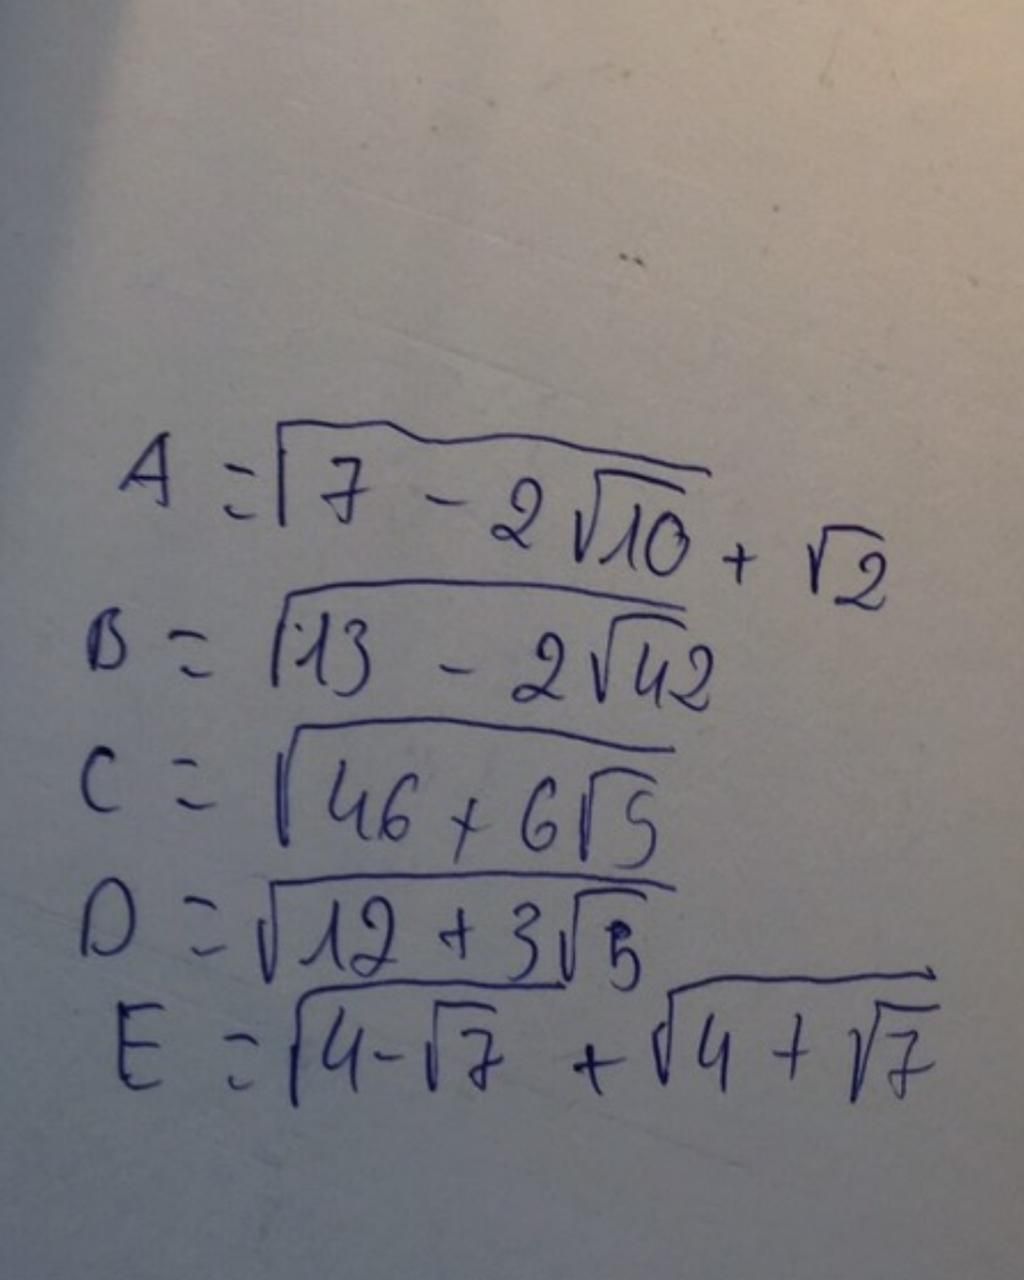 A = √(7 - 2√10) + √2
B = √(13 - 2√42)
C = √(46 + 6√5)
D = √(12 + 3√5)
E = √(4-√7) + √(4 + √7)